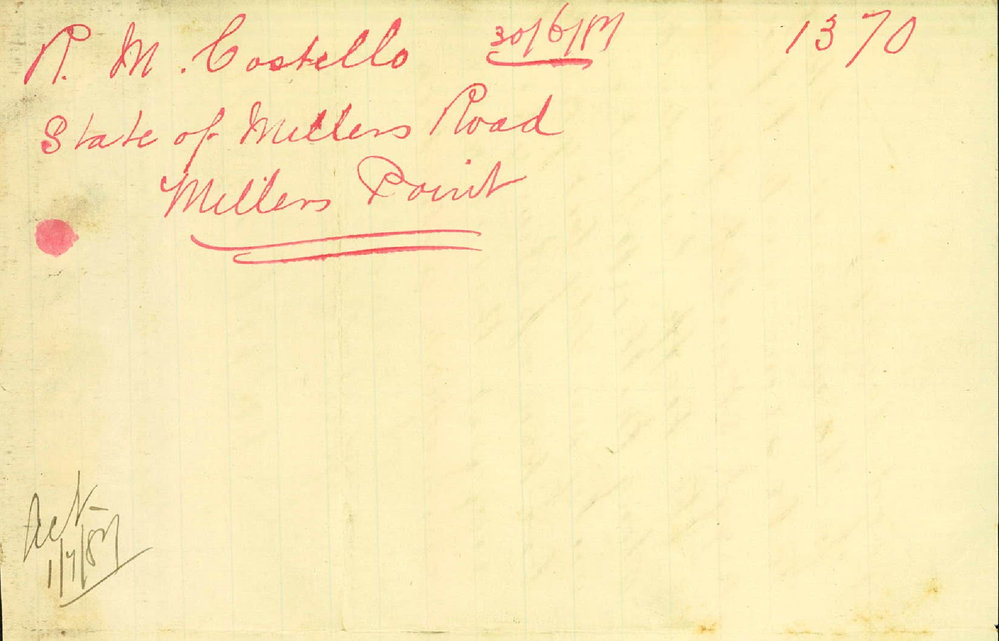 R. M. Costello 30/6/87 1370
State of Millers Road
Millers Point
Act
1/7/87